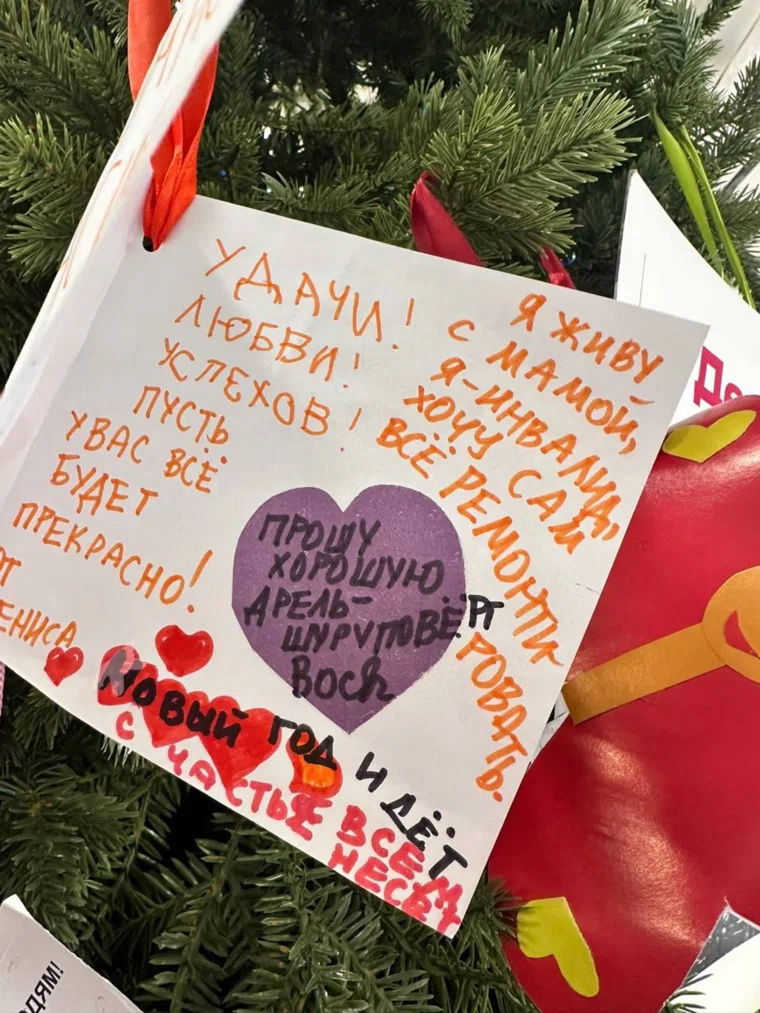 УДАЧИ!
ЛЮБВИ!
УСПЕХОВ!
ПУСТЬ
УВАС ВСЁ
БУДЕТ
ПРЕКРАСНО!
Я ЖИВУ
С МАМОЙ,
Я-ИНВАЛИД,
ХОЧУ САМ
ВСЁ РЕМОНТИ
РОВАТЬ.
ПРОШУ
ХОРОШУЮ
ДРЕЛЬ-
ШУРУПОВЁРТ
Bosch
НОВЫЙ ГОД ИДЁТ
СЧАСТЬЕ ВСЕМ
НЕСЁТ